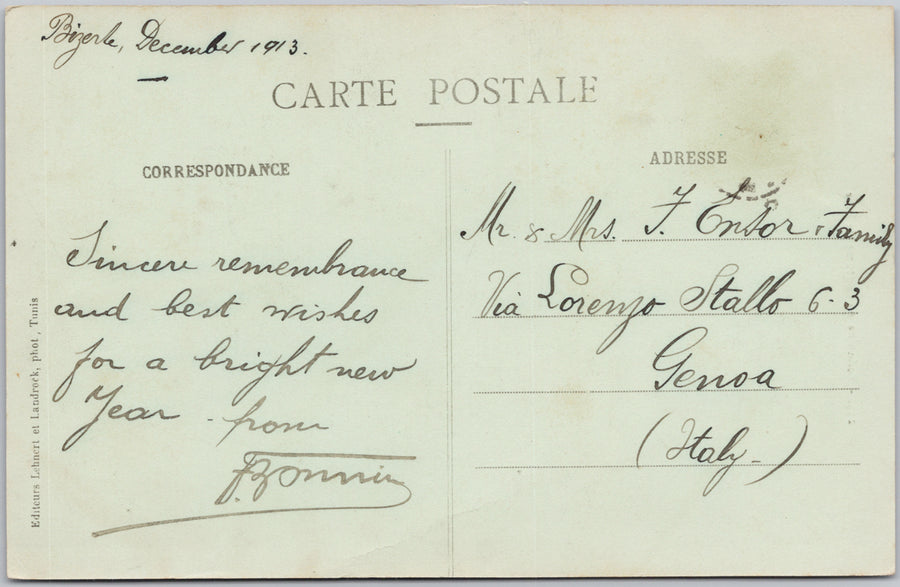 Bizerte, December 1913.
CARTE POSTALE
CORRESPONDANCE
Sincere remembrance
and best wishes
for a bright new
Year - from
ADRESSE
Mr. & Mrs. F. Ensor & Family
Via Lorenzo Stallo 6-3
Genoa
(Italy-)
Editeurs Lehnert et Landrock, phot, Tunis